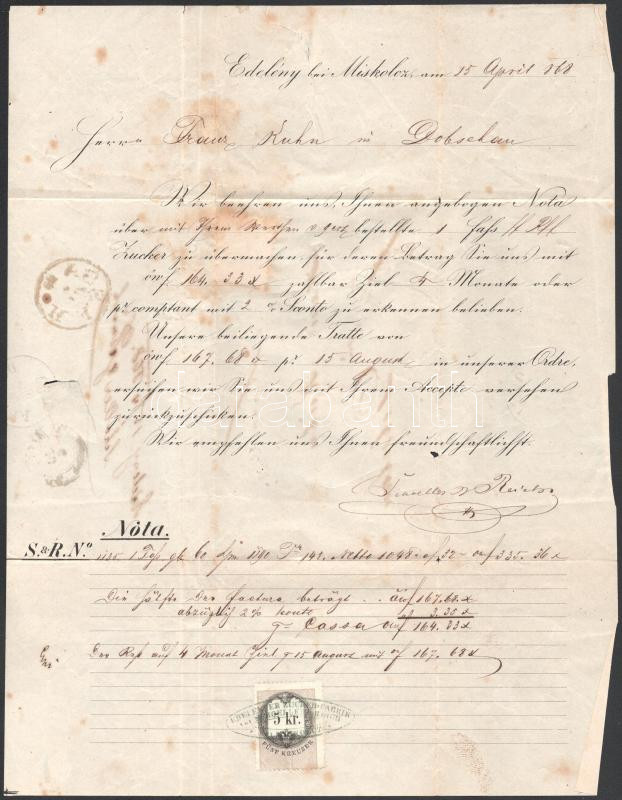 Edelény bei Miskolcz, am 15 April 868
Herrn Franz Kuhn in Dobschau
Wir beehren uns, Ihnen angebogen Nota
über mit Ihrem Werthen bestellte 1 Fass
Zucker zu übermachen für deren Betrag Sie uns mit
öwf 164. 33 x zahlbar Ziel 4 Monate oder
pr comptant mit 2 % Sconto zu erkennen belieben.
Unsere beiliegende Tratte von
öwf 167. 68 x pr 15 August in unserer Ordre,
ersuchen wir Sie uns mit Ihrem Accepte versehen
zurückzuschicken.
Wir empfehlen uns Ihnen freundschaftlichst.
Nóta.
S. & R. No 1 Fass Netto 1048 32 335. 36 x
Die Hälfte der factura beträgt .. 167. 68 x
abzüglich 2 % 3. 35 x
Cassa 164. 33 x
Der Rest auf 4 Monat Ziel 15 August mit 167. 68 x
5 kr.
FÜNF KREUZER
darabanth